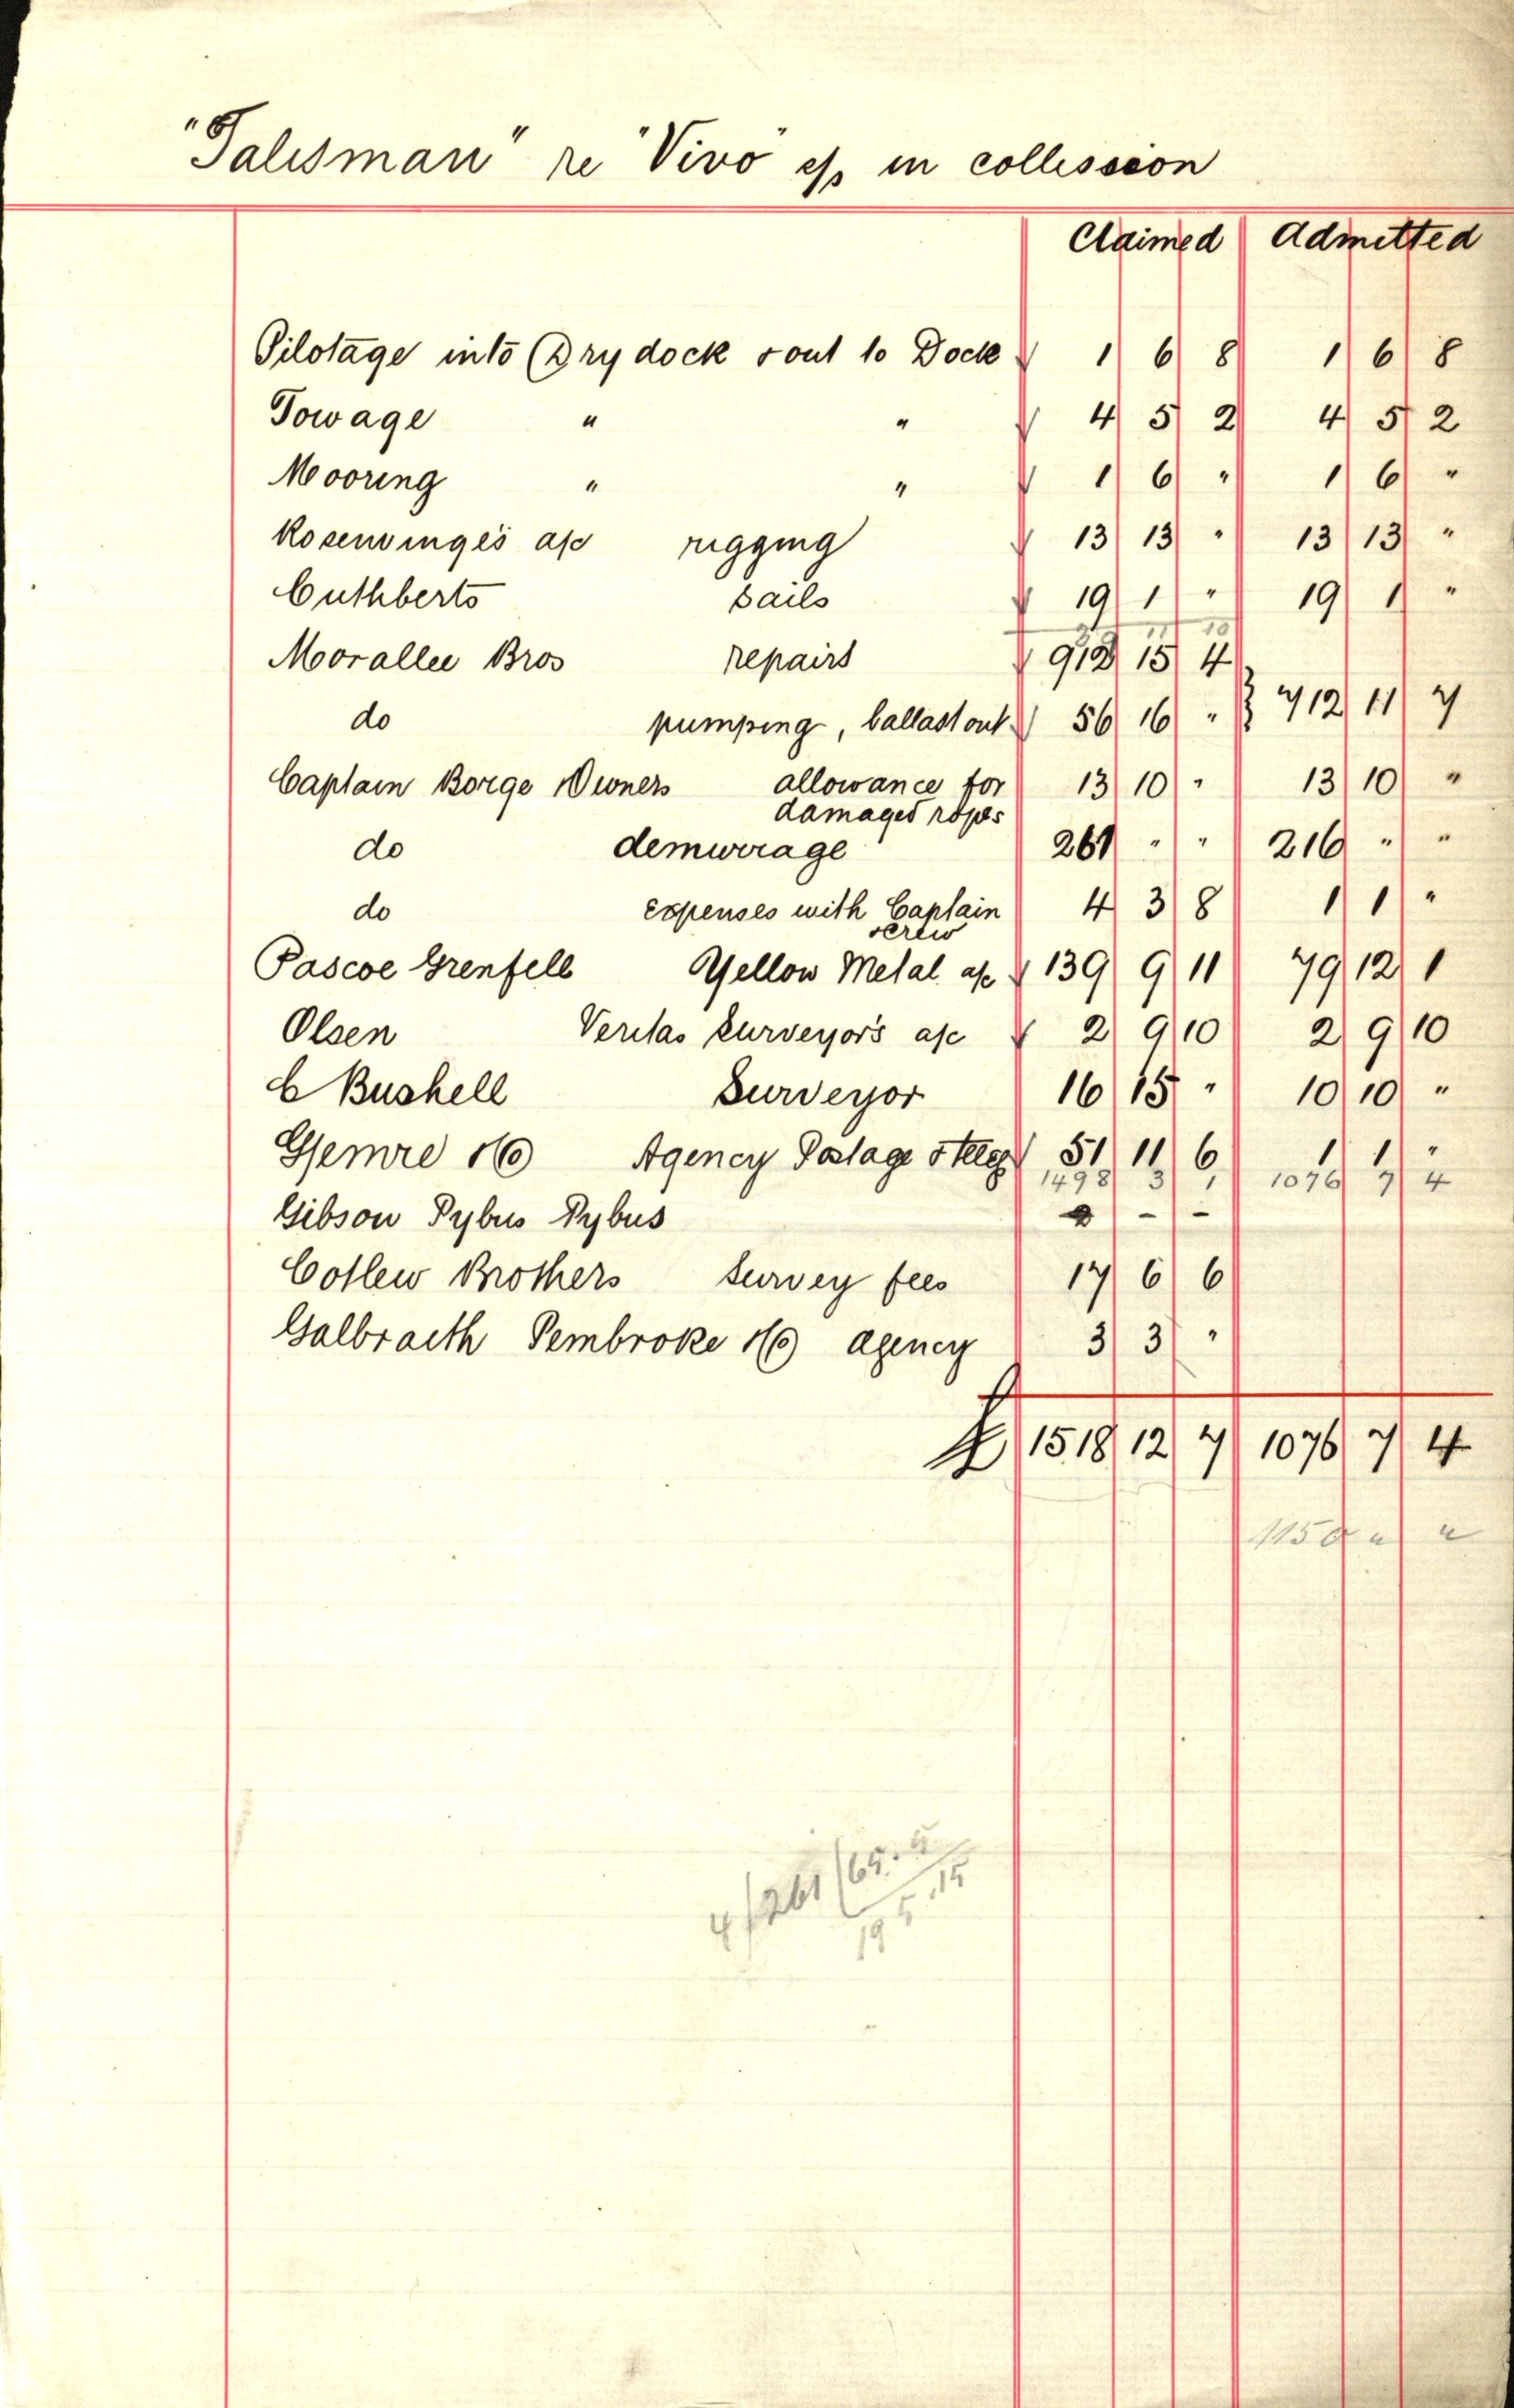 "Talisman" re "Vivo" s/s in collission
Claimed Admitted
Pilotage into Dry dock & out to Dock 1 6 8 1 6 8
Towage " " 4 5 2 4 5 2
Mooring " " 1 6 " 1 6 "
Rosenvinge's a/c rigging 13 13 " 13 13 "
Cuthberts sails 19 1 " 19 1 "
Morallee Bros repairs 912 15 4
do pumping, ballast out 56 16 " 712 11 7
Captain Borge & Owners allowance for 13 10 " 13 10 "
damaged ropes
do demurrage 261 " " 216 " "
do expenses with Captain 4 3 8 1 1 "
& crew
Pascoe Grenfell Yellow Metal a/c 139 9 11 79 12 1
Olsen Veritas Surveyors a/c 2 9 10 2 9 10
C Bushell Surveyor 16 15 " 10 10 "
& Co Agency Postage & telegs 51 11 6 1 1 "
1498 3 1 1076 7 4
Gibson Pybus Pybus - -
Brothers survey fees 17 6 6
Galbraith Pembroke & Co agency 3 3 "
£ 1518 12 7 1076 7 4
1150 " "